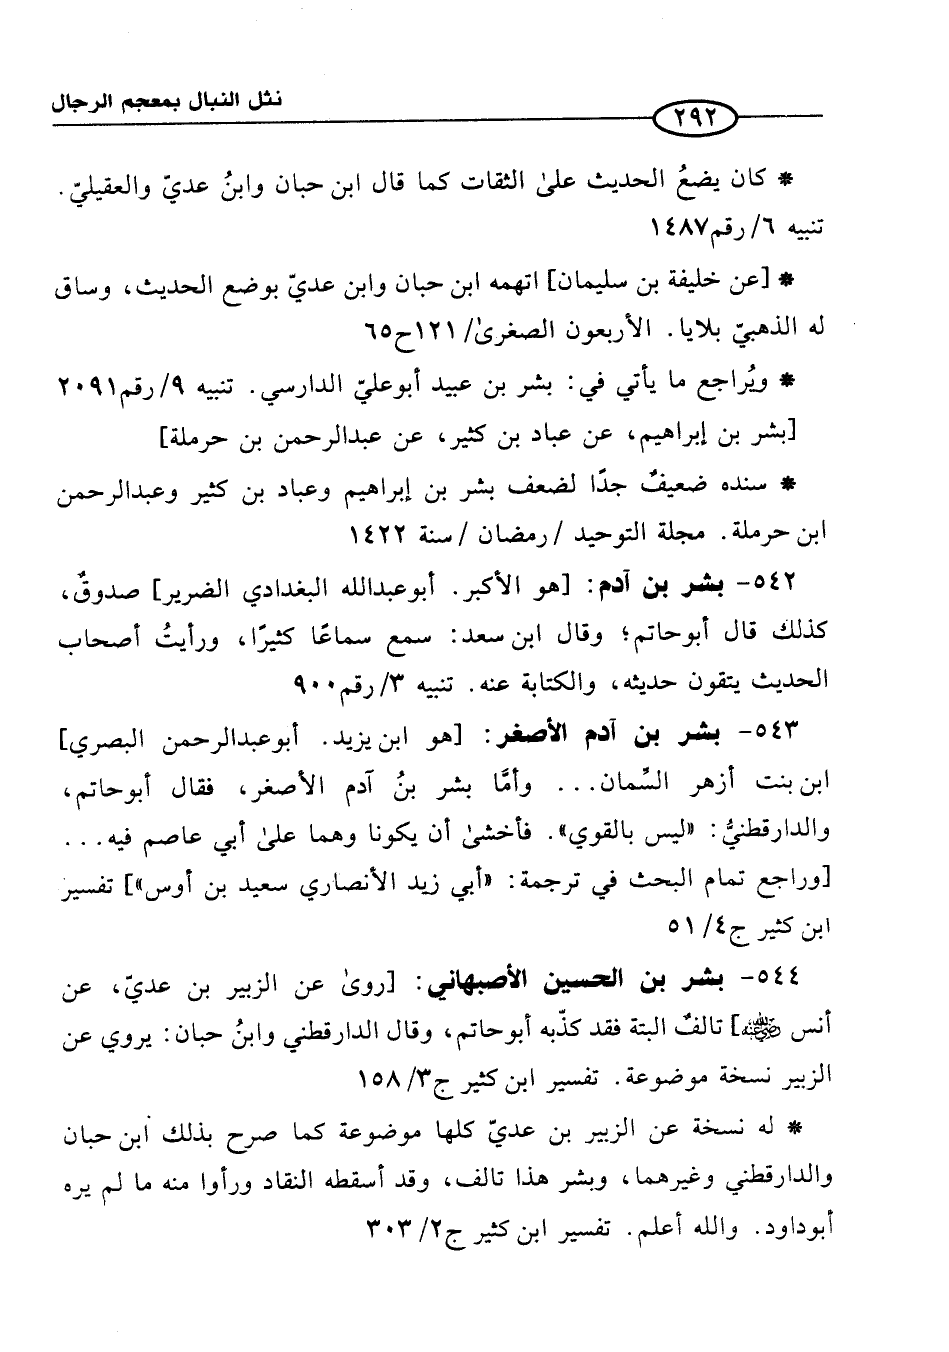 نثل النبال بمعجم الرجال
٢٩٢
* كان يضعُ الحديث علىٰ الثقات كما قال ابن حبان وابنُ عديّ والعقيليّ.
تنبيه ٦/ رقم١٤٨٧
* [عن خليفة بن سليمان] اتهمه ابن حبان وابن عديّ بوضع الحديث، وساق
له الذهبيّ بلايا. الأربعون الصغرىٰ/ ١٢١ح٦٥
* ويُراجع ما يأتي في: بشر بن عبيد أبوعليّ الدارسي. تنبيه ٩/ رقم٢٠٩١
[بشر بن إبراهيم، عن عباد بن كثير، عن عبدالرحمن بن حرملة]
* سنده ضعيفٌ جدًا لضعف بشر بن إبراهيم وعباد بن كثير وعبدالرحمن
ابن حرملة. مجلة التوحيد / رمضان / سنة ١٤٢٢
٥٤٢- بشر بن آدم: [هو الأكبر. أبوعبدالله البغدادي الضرير] صدوقٌ،
كذلك قال أبوحاتم؛ وقال ابن سعد: سمع سماعًا كثيرًا، ورأيتُ أصحاب
الحديث يتقون حديثه، والكتابة عنه. تنبيه ٣/ رقم٩٠٠
٥٤٣- بشر بن آدم الأصغر: [هو ابن يزيد. أبوعبدالرحمن البصري]
ابن بنت أزهر السَّمان... وأمَّا بشر بنُ آدم الأصغر، فقال أبوحاتم،
والدارقطنيُّ: «ليس بالقوي». فأخشىٰ أن يكونا وهما علىٰ أبي عاصم فيه...
[وراجع تمام البحث في ترجمة: «أبي زيد الأنصاري سعيد بن أوس»] تفسير
ابن كثير ج٤/ ٥١
٥٤٤- بشر بن الحسين الأصبهاني: [روىٰ عن الزبير بن عديّ، عن
أنس رضي الله عنه] تالفٌ البتة فقد كذّبه أبوحاتم، وقال الدارقطني وابنُ حبان: يروي عن
الزبير نسخة موضوعة. تفسير ابن كثير ج٣/ ١٥٨
* له نسخة عن الزبير بن عديّ كلها موضوعة كما صرح بذلك ابن حبان
والدارقطني وغيرهما، وبشر هذا تالف، وقد أسقطه النقاد ورأوا منه ما لم يره
أبوداود. والله أعلم. تفسير ابن كثير ج٢/ ٣٠٣